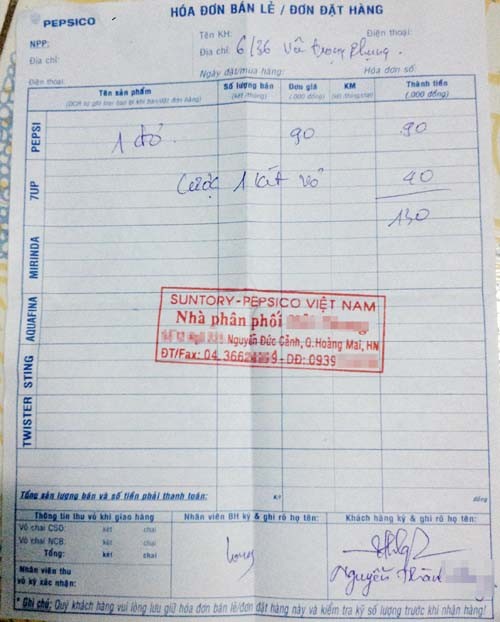 PEPSICO
HÓA ĐƠN BÁN LẺ / ĐƠN ĐẶT HÀNG
NPP:
Tên KH: Điện thoại:
Địa chỉ:
Địa chỉ: 6/36 Vũ Trọng Phụng.
Điện thoại: Ngày đặt/mua hàng: Hóa đơn số:
Tên sản phẩm Số lượng bán Đơn giá KM Thành tiền
(két /thùng) (.000 đồng) (.000 đồng)
PEPSI 1 đỏ 90 90
7UP Cược 1 két vỏ 40
130
MIRINDA
AQUAFINA
STING
TWISTER
SUNTORY-PEPSICO VIỆT NAM
Nhà phân phối
Nguyễn Đức Cảnh, Q.Hoàng Mai, HN
ĐT/Fax: 04. - DĐ: 0939
Tổng sản lượng bán và số tiền phải thanh toán: Kt đồng
Thông tin thu vỏ khi giao hàng Nhân viên BH ký & ghi rõ họ tên: Khách hàng ký & ghi rõ họ tên:
Vỏ chai CSD: két chai
Vỏ chai NCB: két chai
Tổng: két chai
Nhân viên thu
vỏ ký xác nhận:
Nguyễn
* Ghi chú: Quý khách hàng vui lòng lưu giữ hóa đơn bán lẻ/đơn đặt hàng này và kiểm tra kỹ số lượng trước khi nhận hàng!